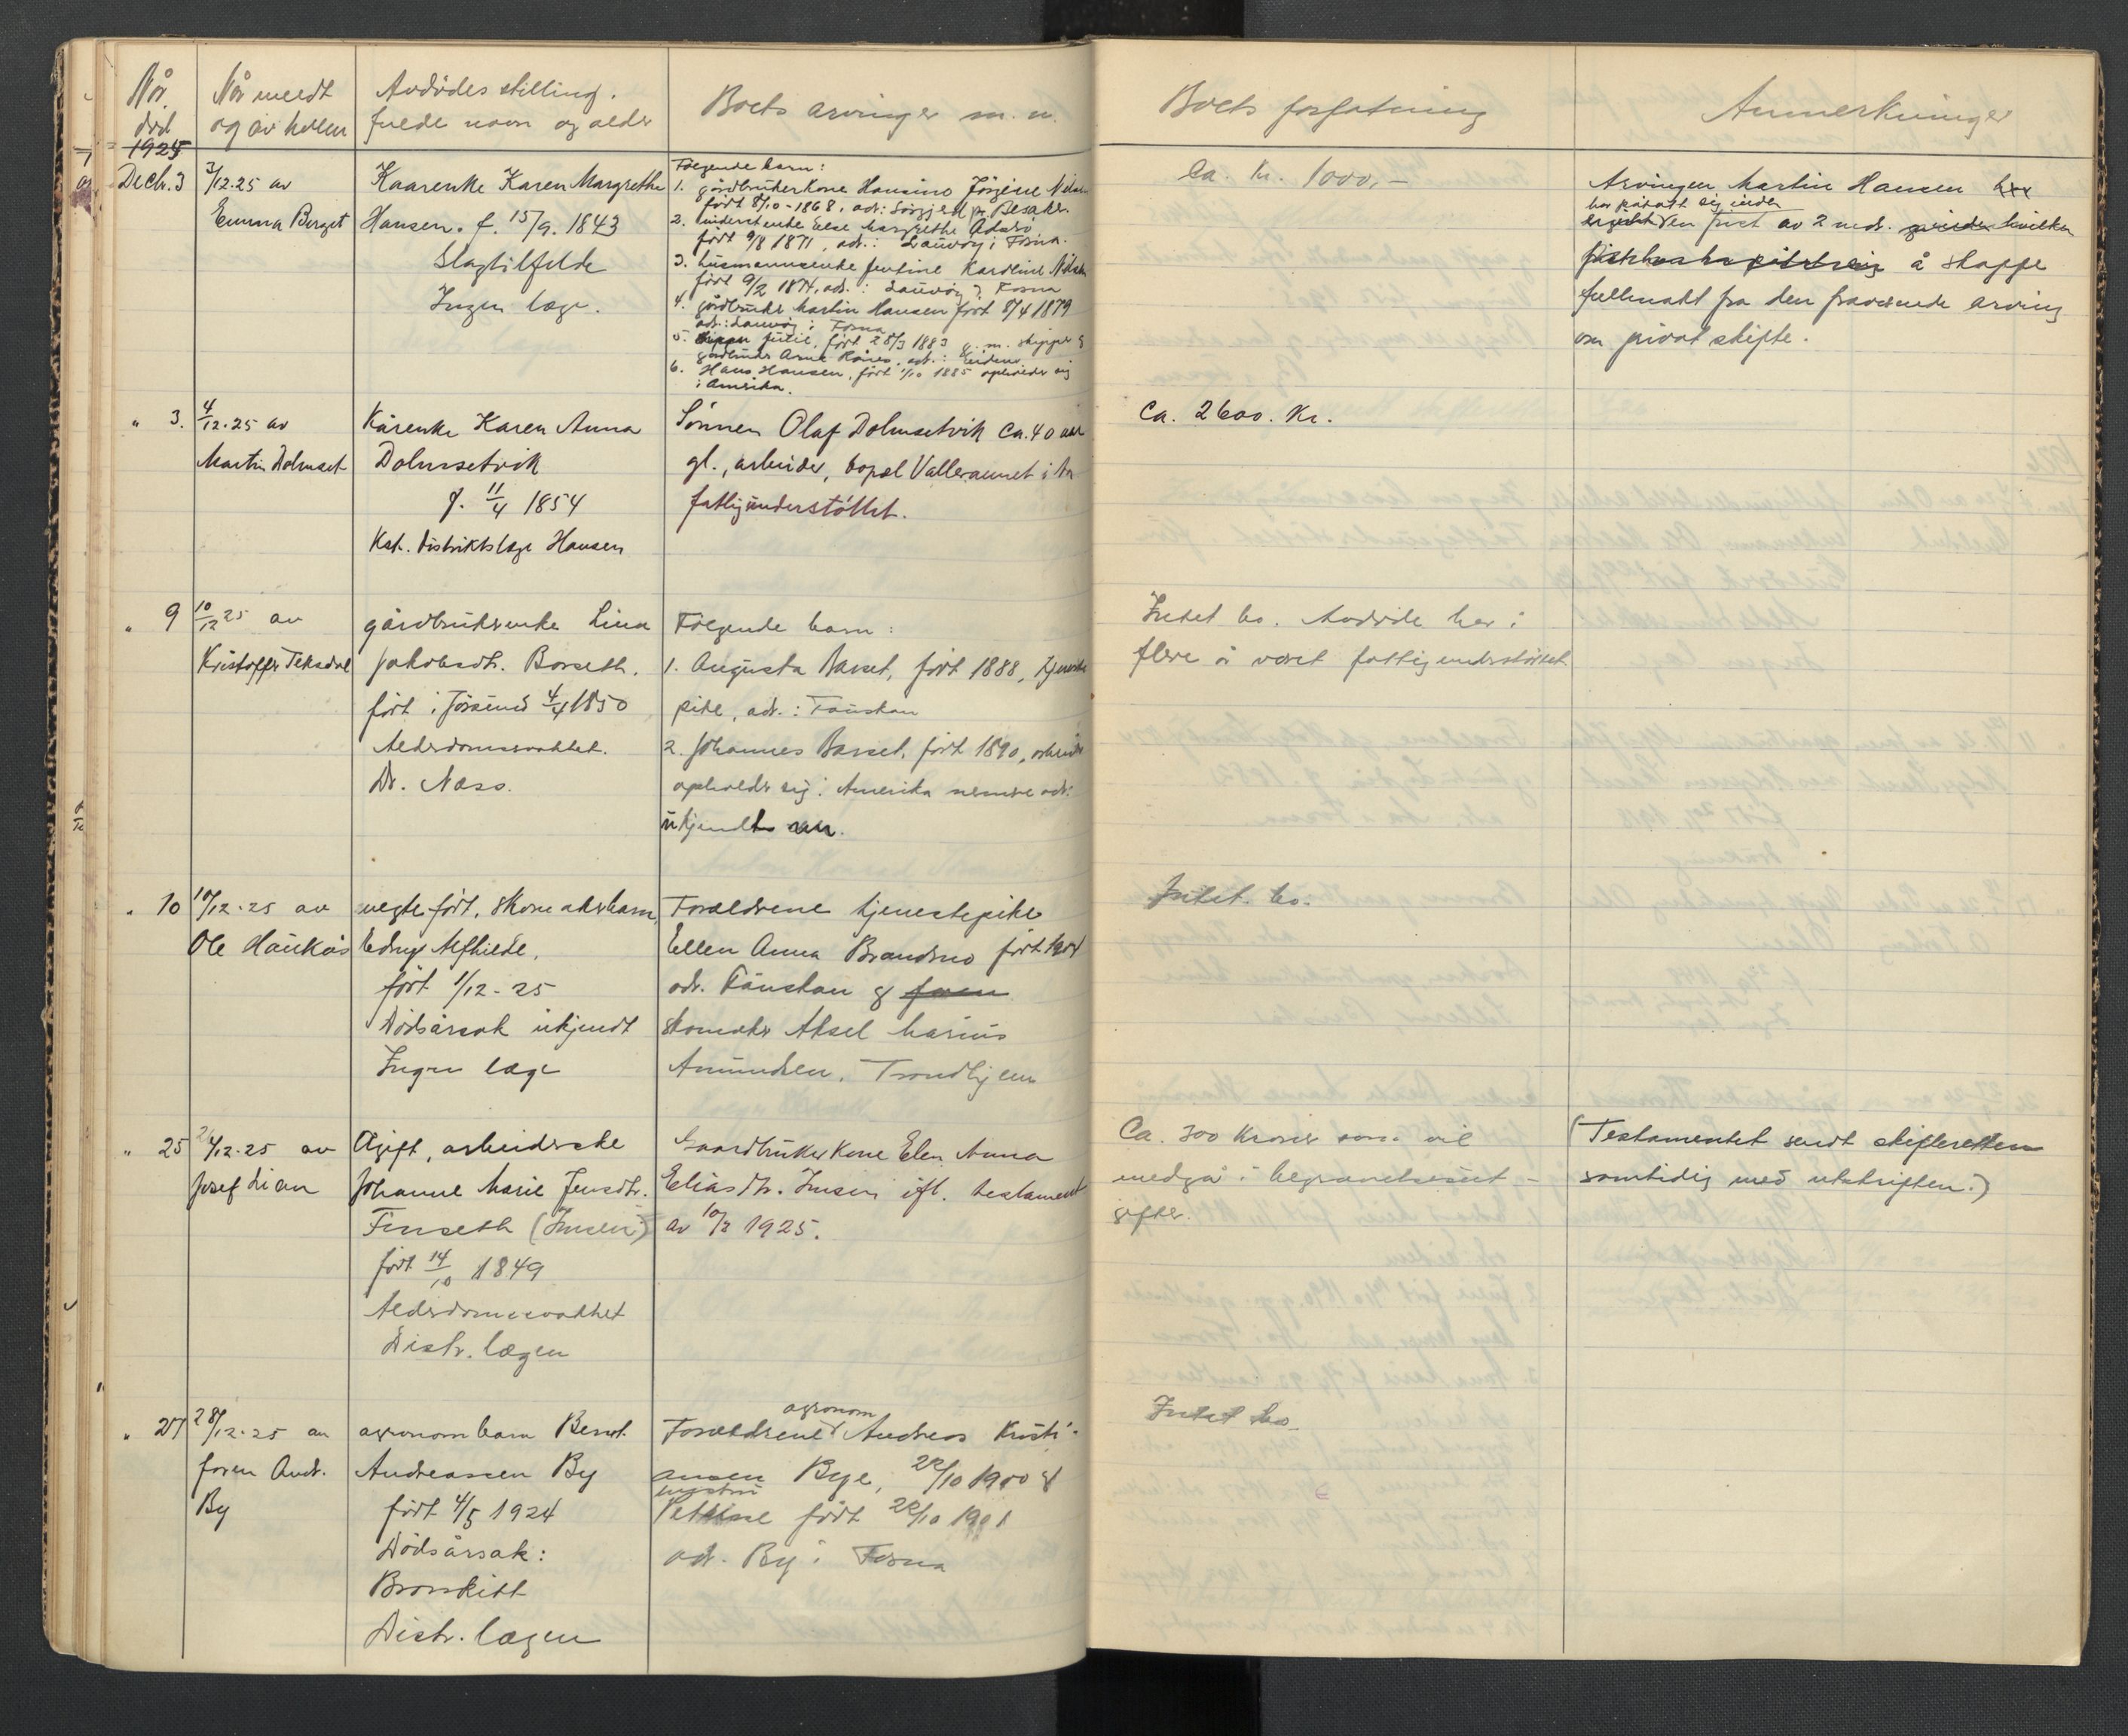 Når død
Når meldt og av hvem
Avdødes stilling, fulde navn og alder
Boets arvinger m. v.
Boets forfatning
Anmerkninger
1925
Decbr. 3
3/12.25 av
Emma Berget
Kaarenke Karen Margrethe
Hansen. f. 15/9. 1843
Slagtilfelde
Ingen læge.
Følgende barn:
1. gårdbrukerkone Hansine Jørgine Nilsen
født 8/10-1868, adr: Sørgjerd pr. Besaker.
2. inderstenke Else Margrethe
født 9/8 1871, adr.: Lauvøy i Fosna.
3. husmannsenke Jentine Karoline Nilsen
født 9/2 1874, adr.: Lauvøy i Fosna
4. gårdbruker Martin Hansen født 8/4 1879
adr: Lauvøy i Fosna
5. Julie, født 28/3 1883 g. m. skipper &
gårdbruker Arne
6. Hans Hansen, født 1/10 1885 opholder sig
i Amerika.
Ca. kr. 1000,-
Arvingen Martin Hansen
har påtatt sig inden
en frist av 2 mdr. hvilken
å skaffe
fullmakt fra den fraværende arving
om privat skifte.
" 3.
4/12.25 av
Martin Dolmset
Kårenke Karen Anna
Dolmsetvik
f. 11/4 1854
Kst. distriktslæge Hansen
Sønnen Olaf Dolmsetvik ca. 40 aar
gl., arbeider, bopæl Valleraunet i
fattigunderstöttet.
Ca. 2600. Kr.
" 9
10/12 25 av
Kristoffer Teksdal
gårdbrukerenke Lina
Jakobsdtr. Barseth.
født i Jössund 4/4 1850
Alderdomssvakhet.
Dr. Næss.
Følgende barn:
1. Augusta Barset, født 1888, tjeneste
pike, adr.: Taustan
2. Johannes Barset, født 1890, arbeider
opholder sig i Amerika nermere adr.
ukjendt.
Intet bo. Avdøde har i
flere år været fattigunderstöttet
" 10
10/12.25 av
Ole Haukås
uegte født, skomakerbarn,
Edny Alfhilde,
født 1/12-25
Dödsårsak ukjendt
Ingen læge
Forældrene tjenestepike
Ellen Anna Brandsø født 1904
adr. Taustan &
skomaker Aksel Marius
Amundsen, Trondhjem
Intet bo.
" 25
26/12.25 av
Josef Lian
Ugift, arbeiderske
Johanne Marie Jensdtr.
Finseth (Imsen)
født 14/10 1849
Alderdomssvakhet
Distr. lægen
Gaardbrukerkone Elen Anna
Eliasdtr. Imsen ifl. testament
av 10/2 1925.
Ca. 300 kroner som vil
medgå i begravelsesut-
gifter.
(Testamentet sendt skifteretten
samtidig med utskriften.)
" 27
28/12.25 av
faren Andr.
By
agronombarn Bernt
Andreassen By
født 4/5 1924
Dödsårsak:
Bronkitt
Distr. lægen
agronom
Forældrene Andreas Kristi-
ansen Bye, 22/10 1900 &
hustru
Petrine født 22/10 1901
adr. By i Fosna
Intet bo